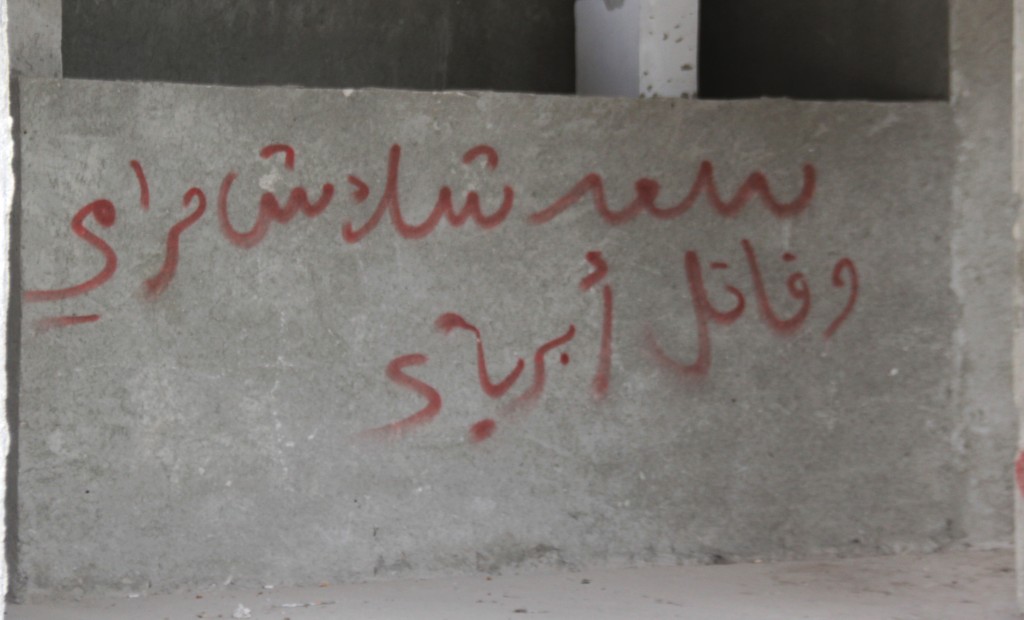 سعد شلاش حرامي
وقاتل أبرياء